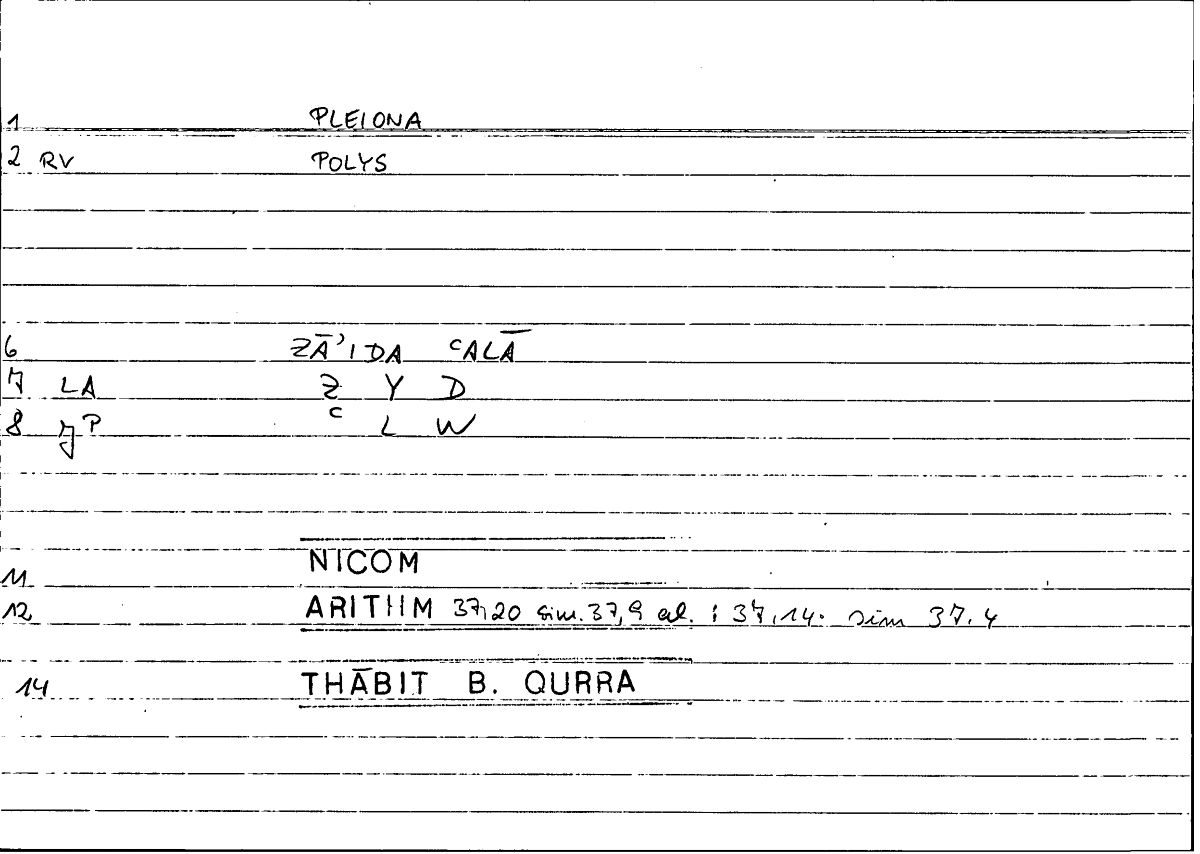 1 PLEIONA
2 RV POLYS
6 ZĀ'IDA ʿALĀ
7 LA Z Y D
8 P ʿ L W
NICOM
11
12 ARITHM 37,20 sim. 37,9 al. : 37,14. sim 37.4
14 THĀBIT B. QURRA